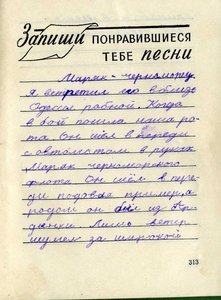 Запиши ПОНРАВИВШИЕСЯ
ТЕБЕ песни
Моряк - черноморец
Я встретил его вблизи
Одессы родной. Когда
в бой пошла наша ро-
та. Он шёл впереди
с автоматом в руках
Моряк черноморского
флота. Он шёл впере-
ди подовая пример, а
родом он был из Ор-
дынки Лишь ветер
шумел за широкой
313